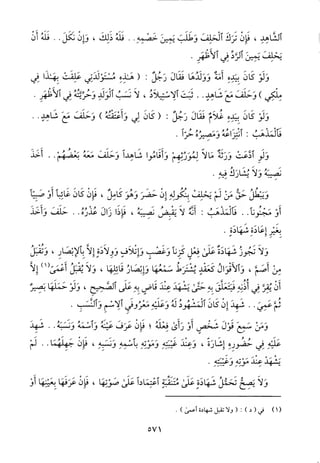 الشاهد ، فإن ترك الحلف وطلب يمين خصمه .. فله ذلك ، وإن نكل .. فله أن
يحلف يمين الرد في الأظهر .
ولو كان بيده أمة وولدها فقال رجل : ( هذه مستولدتي علقت بهذا في
ملكي ) وحلف مع شاهد .. ثبت الاستيلاد ، لا نسب الولد وحريته في الأظهر .
ولو كان بيده غلام فقال رجل : ( كان لي وأعتقته ) وحلف مع شاهد ..
فالمذهب : انتزاعه ومصيره حرا .
ولو ادعت ورثة مالا لمورثهم وأقاموا شاهدا وحلف معه بعضهم .. أخذ
نصيبه ولا يشارك فيه .
ويبطل حق من لم يحلف بنكوله إن حضر وهو كامل ، فإن كان غائبا أو صبيا
أو مجنونا .. فالمذهب : أنه لا يقبض نصيبه ، فإذا زال عذره .. حلف وأخذ
بغير إعادة شهادة .
ولا تجوز شهادة على فعل كزنا وغصب وإتلاف وولادة إلا بالإبصار ، وتقبل
من أصم ، والأقوال كعقد يشترط سمعها وإبصار قائلها ، ولا يقبل أعمى(١) إلا
أن يقر في أذنه فيتعلق به حتى يشهد عند قاض به على الصحيح ، ولو حملها بصير
ثم عمي .. شهد إن كان المشهود له وعليه معروفي الاسم والنسب .
ومن سمع قول شخص أو رأى فعله ؛ فإن عرف عينه واسمه ونسبه .. شهد
عليه في حضوره إشارة ، وعند غيبته وموته باسمه ونسبه ، فإن جهلهما .. لم
يشهد عند موته وغيبته .
ولا يصح تحمل شهادة على متنقبة اعتمادا على صوتها ، فإن عرفها بعينها أو
(١) في (د) : ( ولا تقبل شهادة أعمى ) .
٥٧١